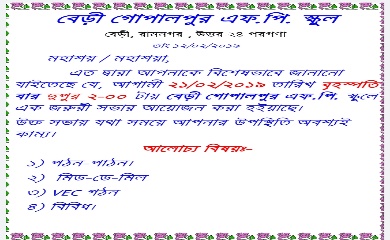 বেড়ী গোপালপুর এফ.পি. স্কুল
বেড়ী, রামনগর, উত্তর ২৪ পরগণা
তাং ১২/০২/২০১৯
মহাশয় / মহাশয়া,
এত দ্বারা আপনাকে বিশেষভাবে জানানো
যাইতেছে যে, আগামী ২১/০২/২০১৯ তারিখ বৃহস্পতি
বার দুপুর ২-০০ টায় বেড়ী গোপালপুর এফ.পি. স্কুলে
এক জরুরী সভার আয়োজন করা হইয়াছে।
উক্ত সভায় যথা সময়ে আপনার উপস্থিতি অবশ্যই
কাম্য।
আলোচ্য বিষয়ঃ-
১) পঠন পাঠন।
২) মিড-ডে-মিল
৩) VEC গঠন
৪) বিবিধ।